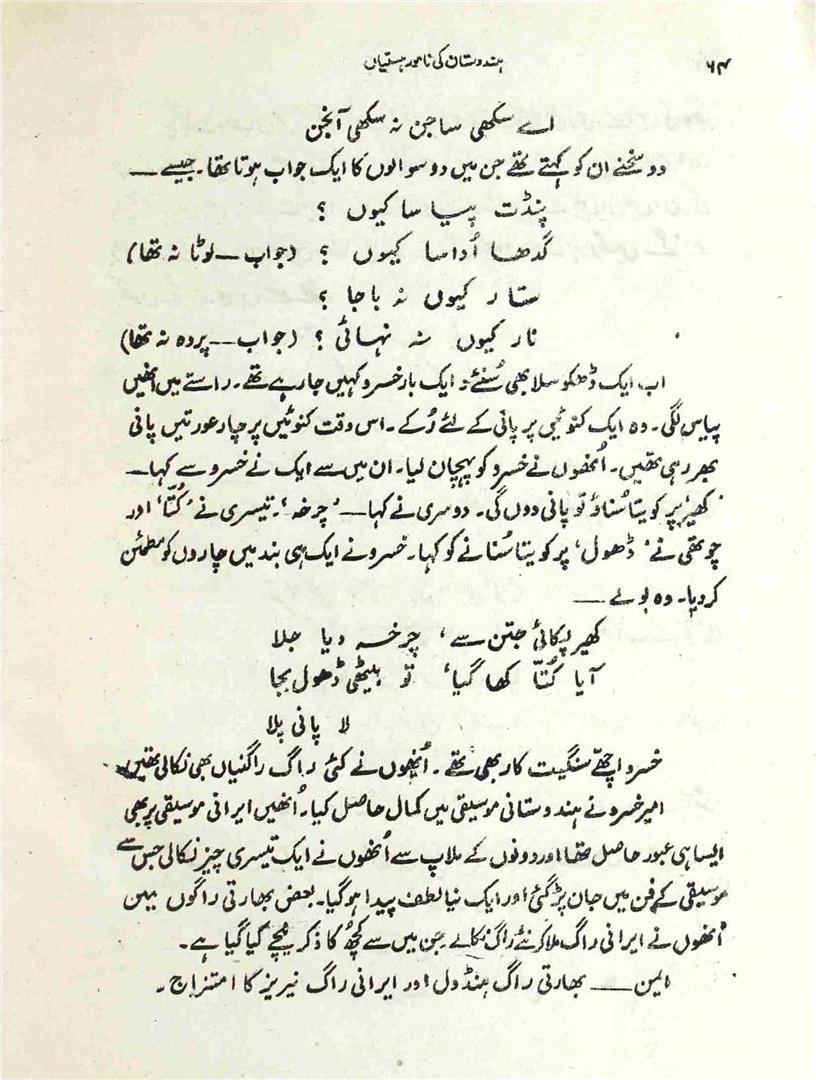 ۶۴ ہندوستان کی نامور ہستیاں
اے سکھی ساجن نہ سکھی آنجن
دو سخنے ان کو کہتے تھے جن میں دو سوالوں کا ایک جواب ہوتا تھا۔ جیسے ــــ
پنڈت پیاسا کیوں ؟
گدھا اُداسا کیوں ؟ (جواب ــ لوٹا نہ تھا)
ستار کیوں نہ باجا ؟
نار کیوں نہ نہائی ؟ (جواب ــ پردہ نہ تھا)
اب ایک ڈھکوسلا بھی سُنئے، ایک بار خسرو کہیں جا رہے تھے۔ راستے میں انھیں
پیاس لگی۔ وہ ایک کنوئیں پر پانی کے لئے رُکے۔ اس وقت کنوئیں پر چار عورتیں پانی
بھر رہی تھیں۔ اُنھوں نے خسرو کو پہچان لیا۔ ان میں سے ایک نے خسرو سے کہا ــــ
’کھیر‘ پر کویتا سُناؤ تو پانی دوں گی۔ دوسری نے کہا ــــ ’چرخہ‘۔ تیسری نے ’کُتّا‘ اور
چوتھی نے ’ڈھول‘ پر کویتا سُنانے کو کہا۔ خسرو نے ایک ہی بند میں چاروں کو مطمئن
کر دیا۔ وہ بولے ــــ
کھیر پکائی جتن سے، چرخہ دیا جلا
آیا کُتّا کھا گیا، تو بیٹھی ڈھول بجا
لا پانی پلا
خسرو اچھّے سنگیت کار بھی تھے۔ اُنھوں نے کئی راگ راگنیاں بھی نکالی تھیں۔
امیر خسرو نے ہندوستانی موسیقی میں کمال حاصل کیا۔ اُنھیں ایرانی موسیقی پر بھی
ایسا ہی عبور حاصل تھا اور دونوں کے ملاپ سے اُنھوں نے ایک تیسری چیز نکالی جس سے
موسیقی کے فن میں جان پڑ گئی اور ایک نیا لطف پیدا ہو گیا۔ بعض بھارتی راگوں میں
اُنھوں نے ایرانی راگ ملا کر نئے راگ نکالے جن میں سے کچھ کا ذکر نیچے کیا گیا ہے۔
ایمن ــــ بھارتی راگ ہنڈول اور ایرانی راگ نیریز کا امتزاج۔